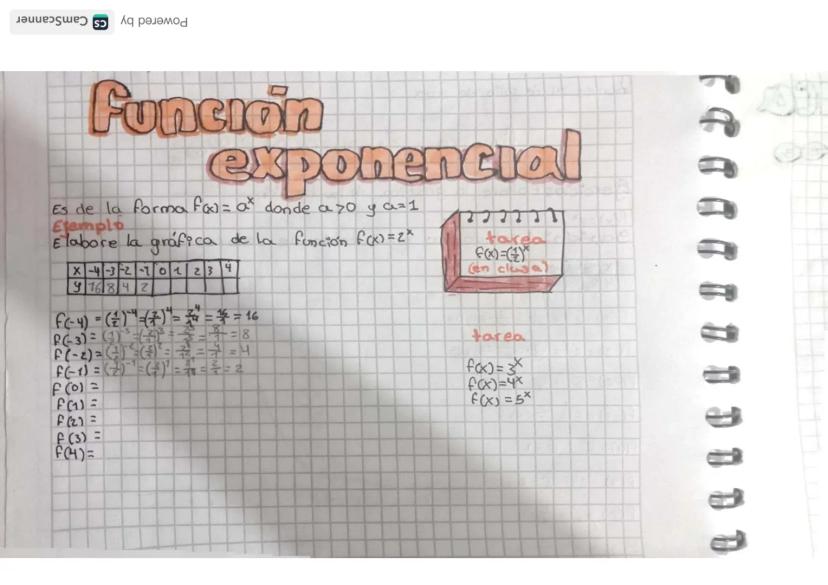 Powered by CS CamScanner
Función
exponencial
Es de la forma f(x)= a^x donde a>0 y a=1
Ejemplo
Elabore la gráfica de la función f(x)=2^x
x -4 -3 -2 -1 0 1 2 3 4
y 16 8 4 2
f(-4) = (1/2)^-4 = (2/1)^4 = 2^4/1^4 = 16/1 = 16
f(-3) = (1/2)^-3 = (2/1)^3 = = 8/1 = 8
f(-2) = (1/2)^-2 = (2/1)^2 = = 4/1 = 4
f(-1) = (1/2)^-1 = (2/1)^1 = = 2/1 = 2
f(0) =
f(1) =
f(2) =
f(3) =
f(4) =
tarea
f(x)=(1/2)^x
(en clase)
tarea
f(x)=3^x
f(x)=4^x
f(x)=5^x